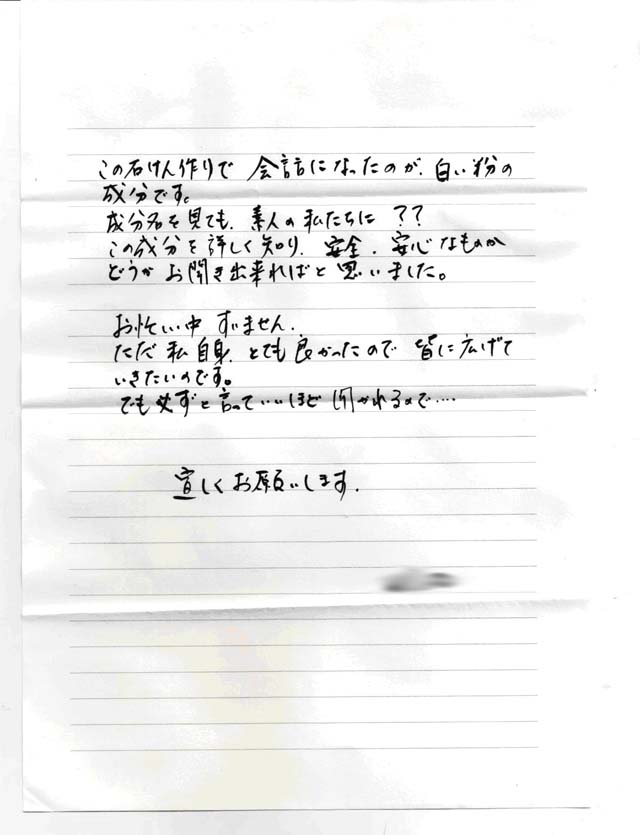 この石けん作りで 会話になったのが、白い粉の
成分です。
成分名を見ても、素人の私たちに ??
この成分を詳しく知り、安全、安心なものか
どうか お聞き出来ればと思いました。
お忙しい中 すいません。
ただ 私自身、とても良かったので 皆に広げて
いきたいのです。
でも必ずと言っていいほど 聞かれるので‥‥
宜しくお願いします。